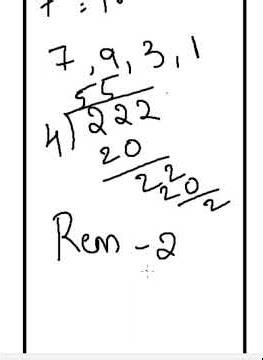 7, 9, 3, 1
55
4) 222
20
22
20
2
Rem - 2